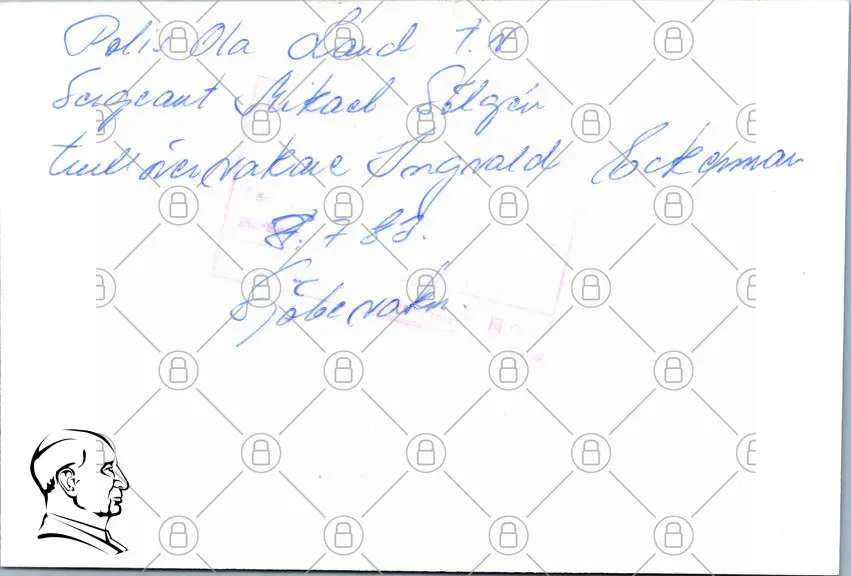 Polis Ola Land t.v
Sergeant Mikael Sölgén
tullövervakare Ingvald Eckerman
8. 7 83.
Sjöbevakn.